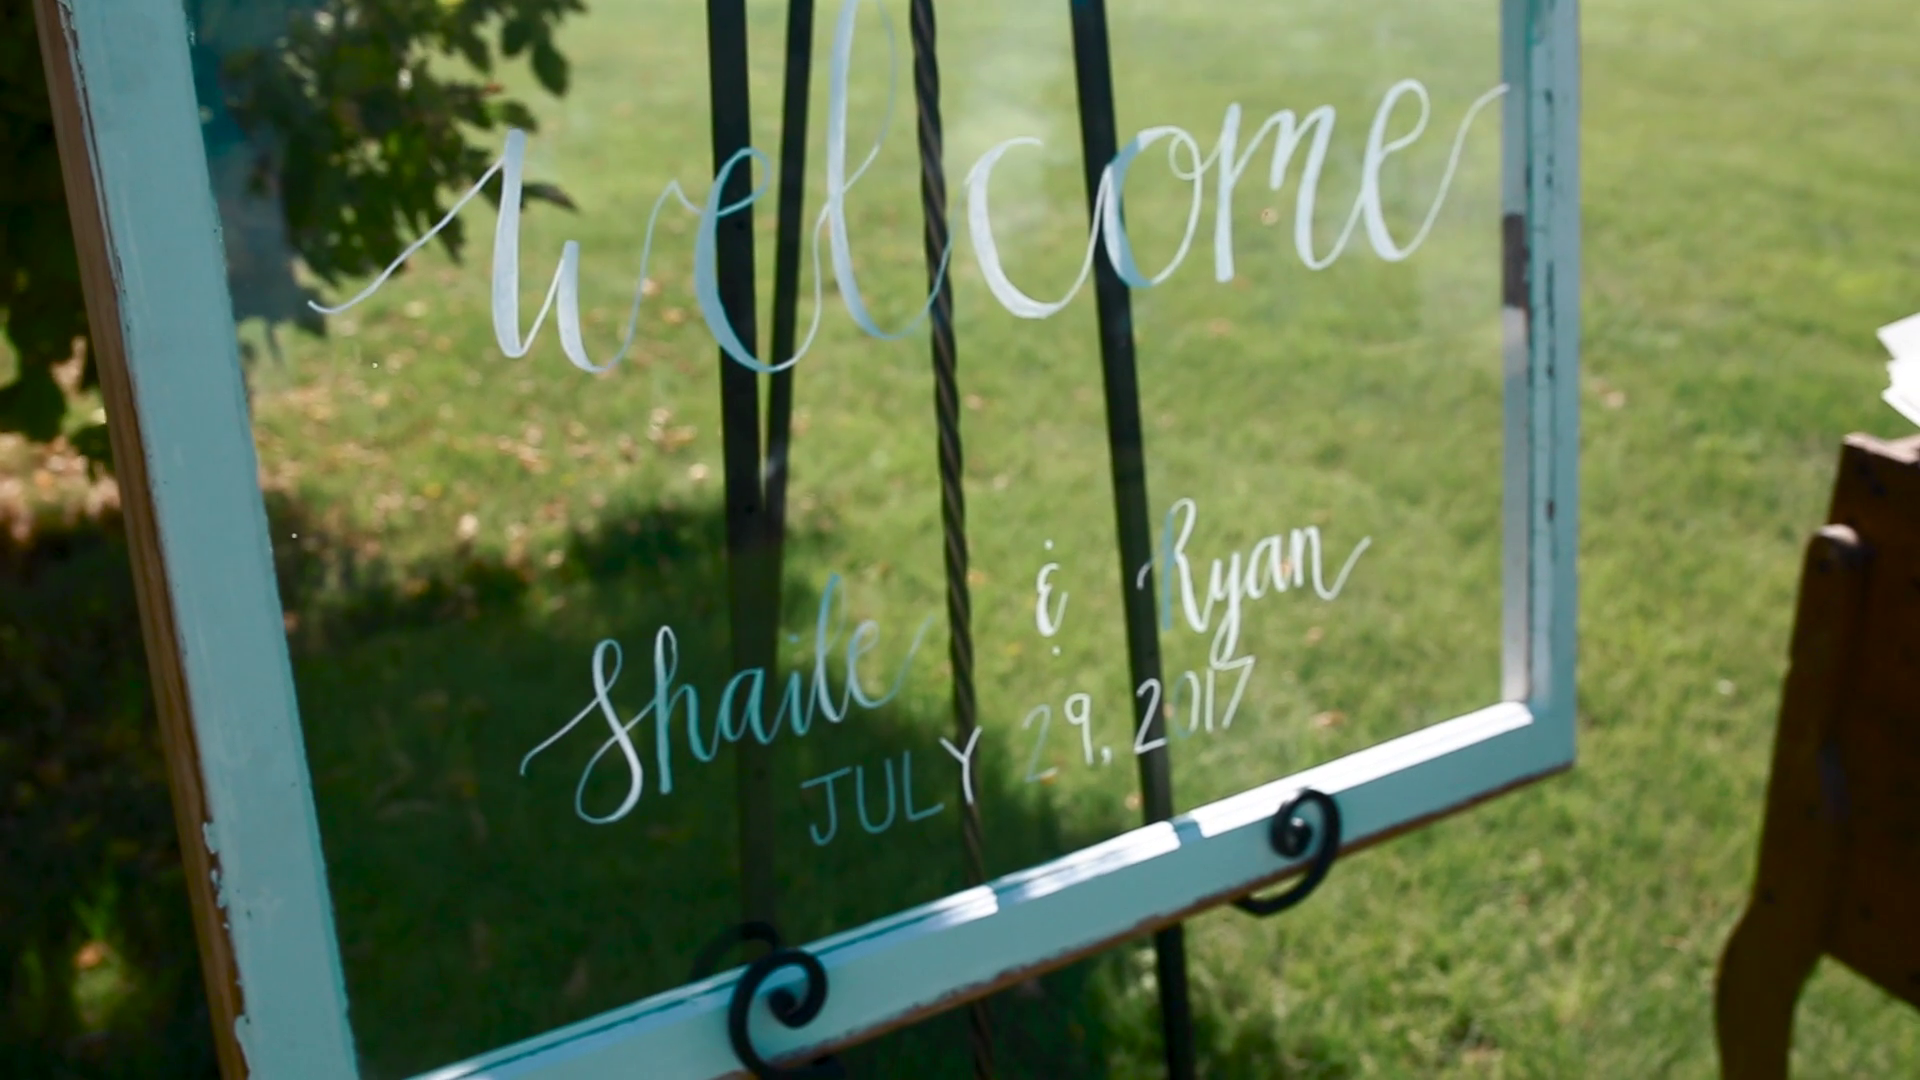 welcome
Shaile & Ryan
JULY 29, 2017